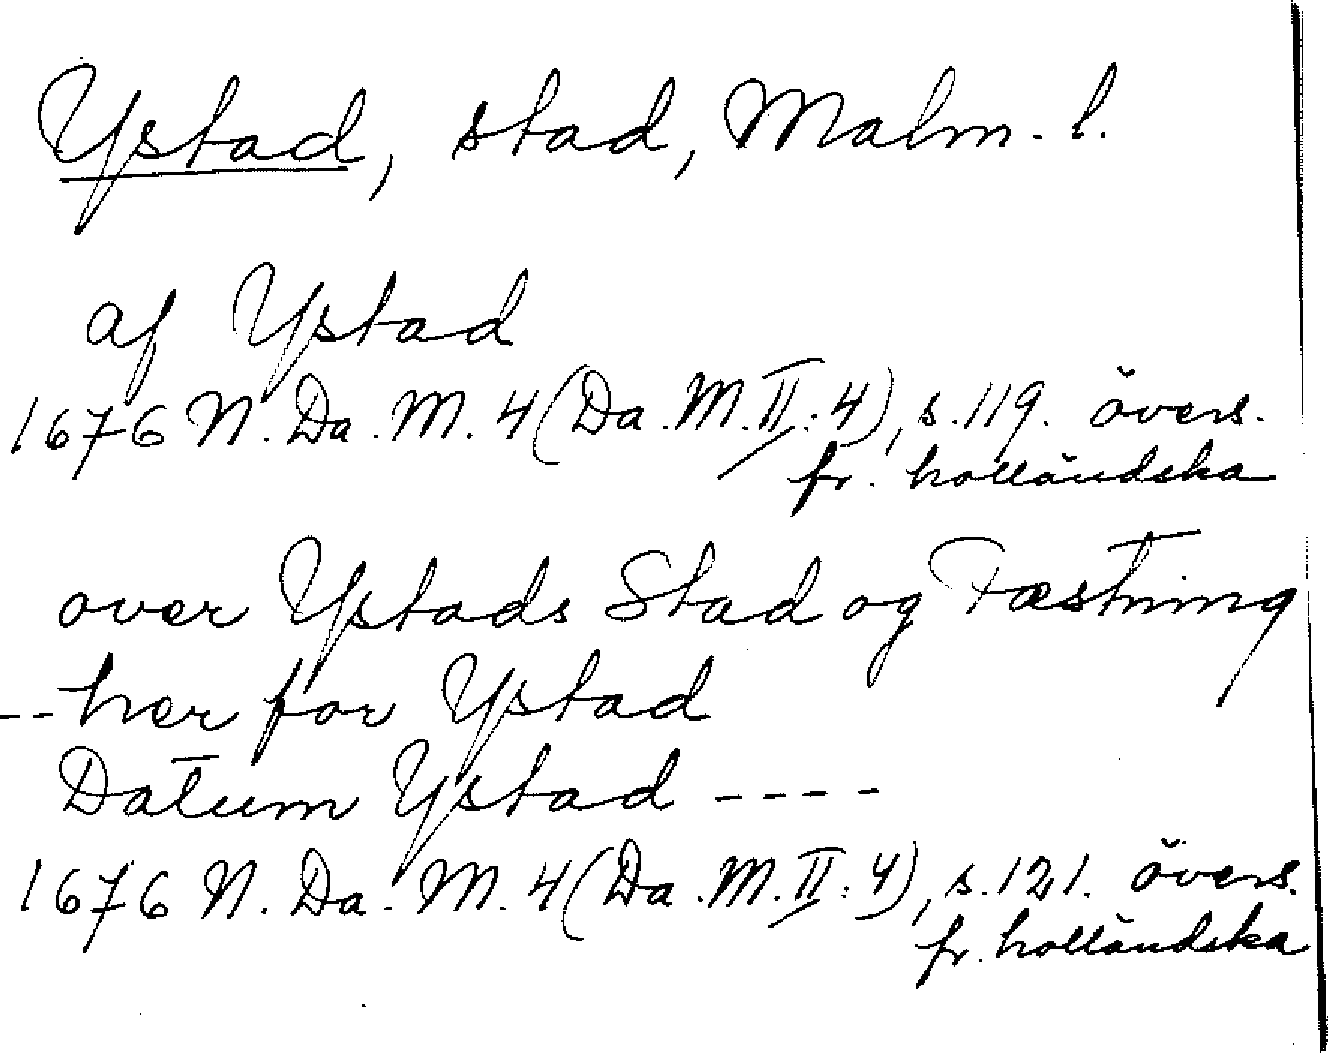 Ystad, stad, Malm. l.
af Ystad
1676 N. Da. M. 4 (Da. M. II: 4), s. 119. övers.
fr. holländska
over Ystads Stad og Fæstning
-- her for Ystad
Datum Ystad ----
1676 N. Da. M. 4 (Da. M. II: 4), s. 121. övers.
fr. holländska